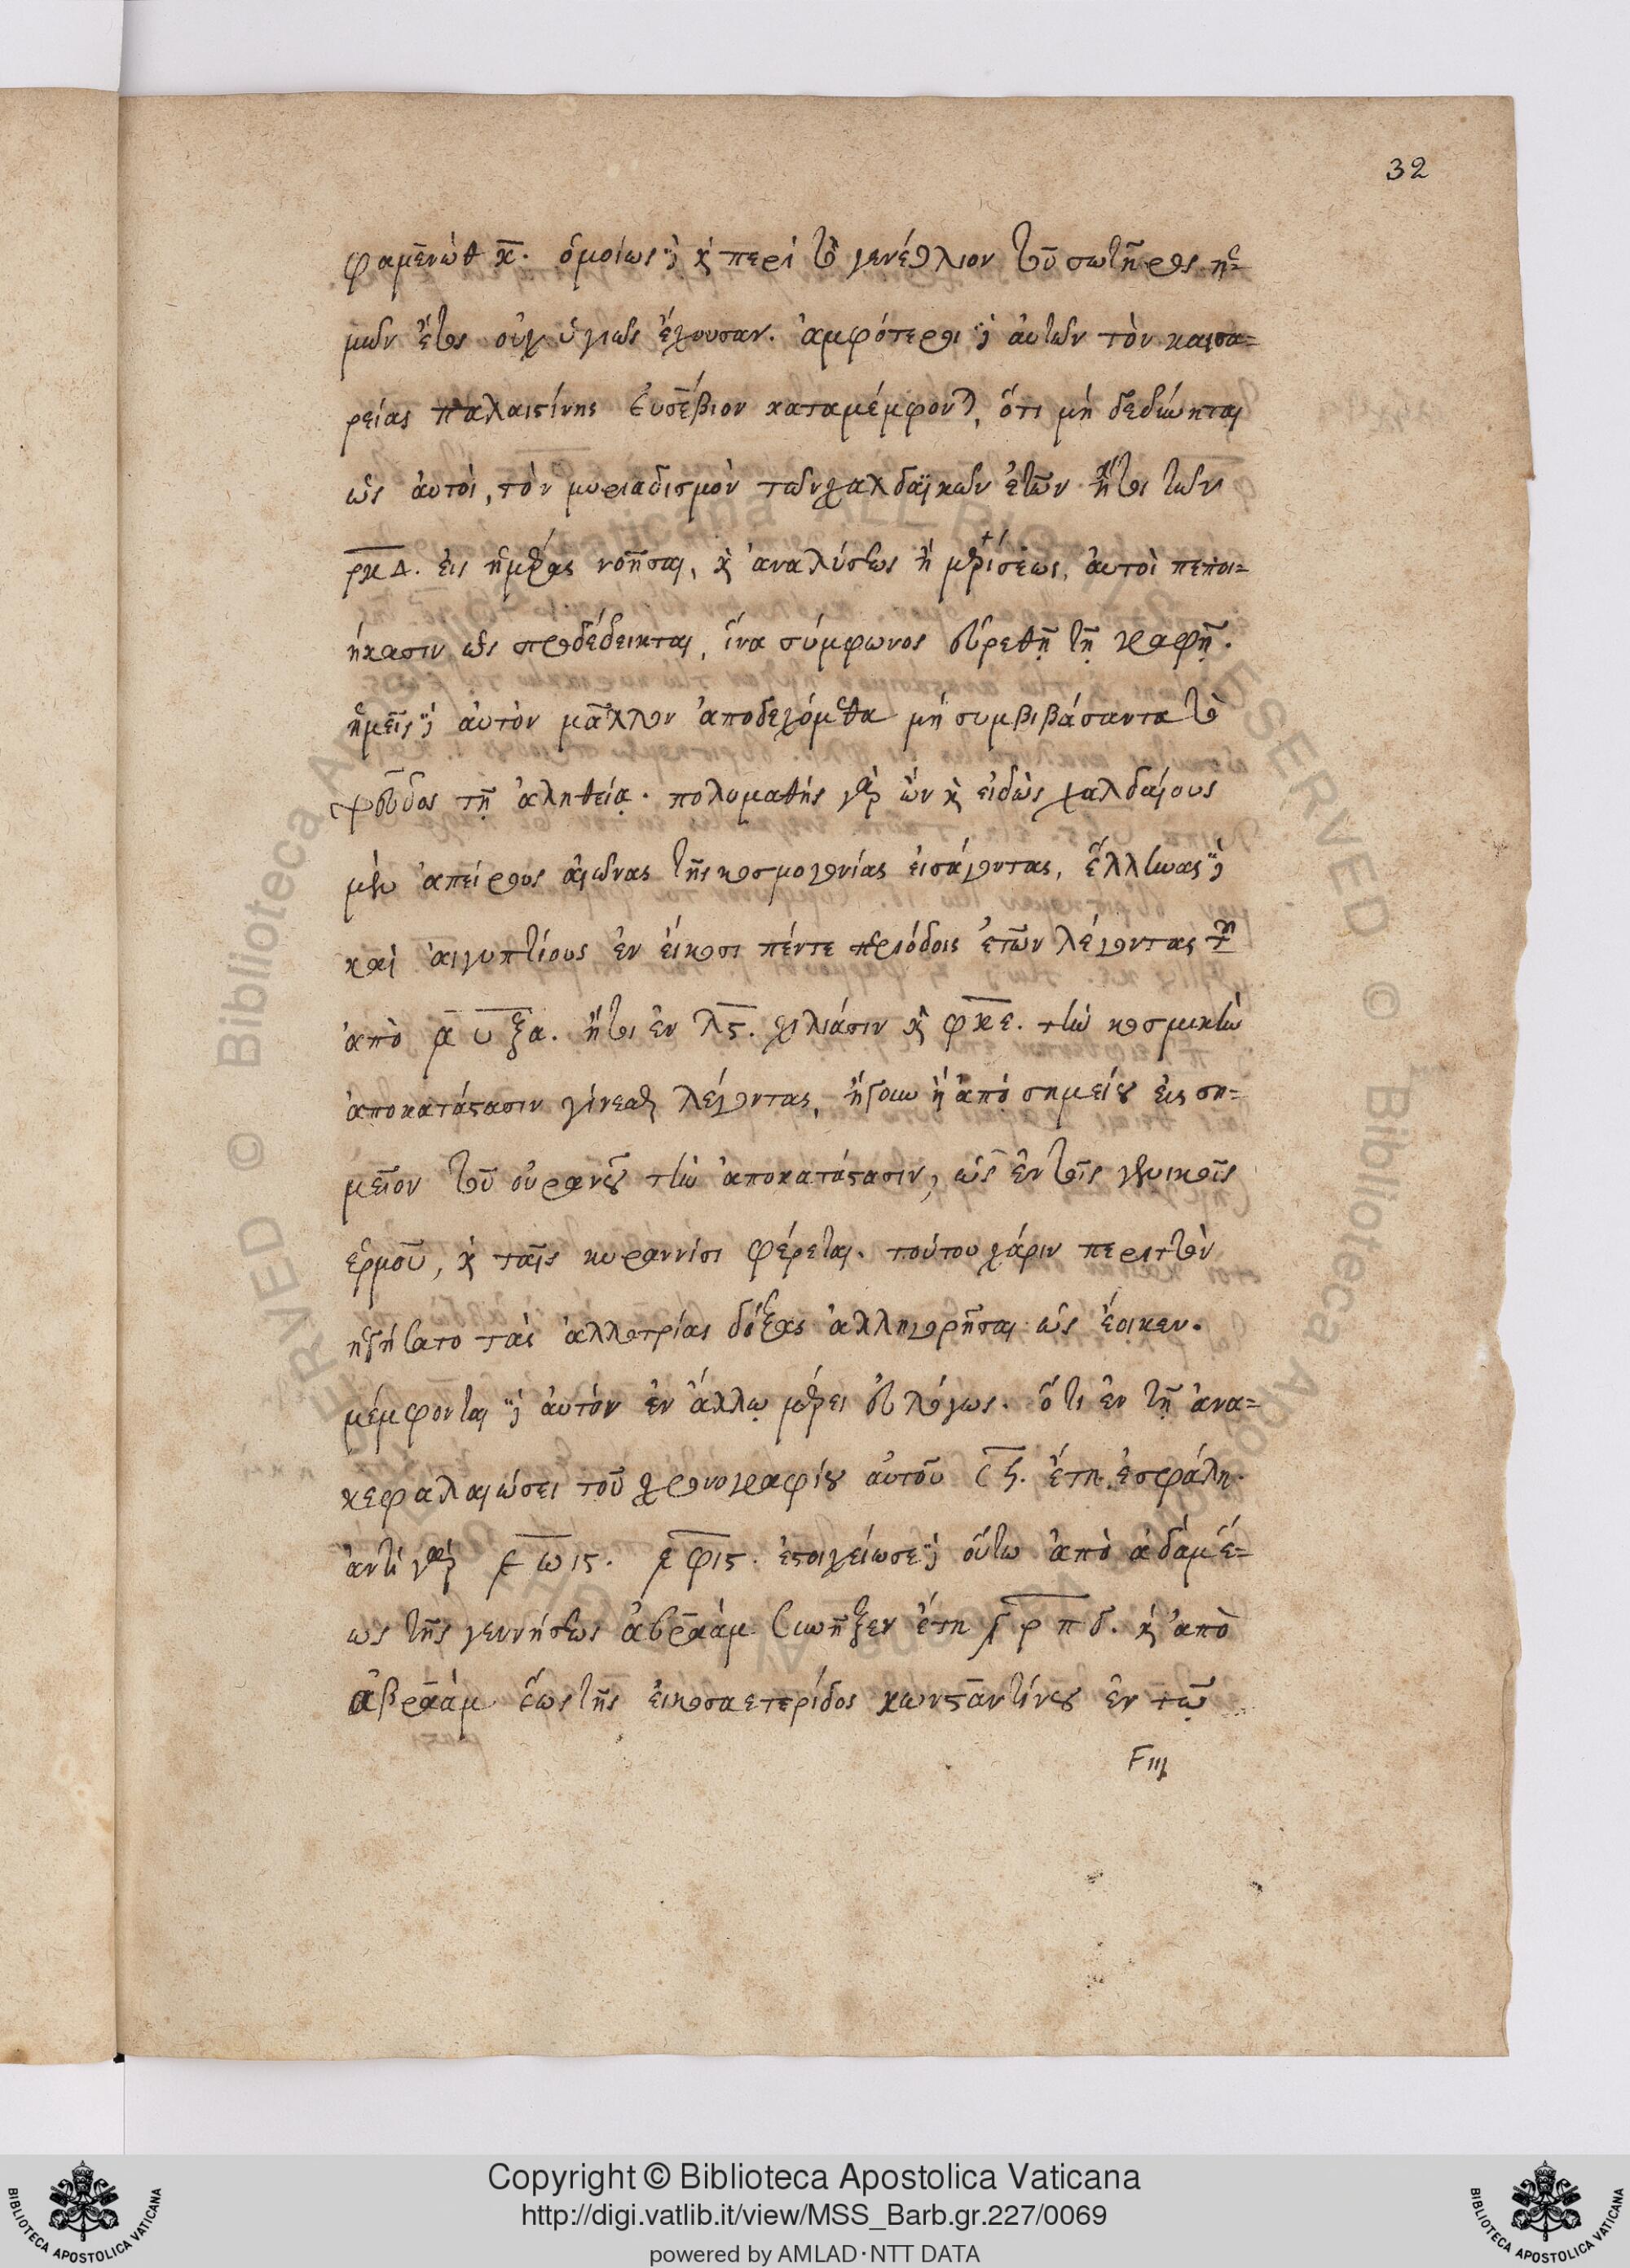 32
φαμενὼθ κ̄. ὁμοίως δὲ καὶ περὶ τὸ γενέθλιον τοῦ σωτῆρος ἡ-
μῶν ἔτος οὐχ ὑγιῶς ἔχουσαν. ἀμφότεροι δὲ αὐτῶν τὸν καισα-
ρείας παλαιστίνης εὐσέβιον καταμέμφονται, ὅτι μὴ δεδύνηται
ὡς αὐτοὶ, τὸν μυριαδισμὸν τῶν χαλδαϊκῶν ἐτῶν ἤτοι τῶν
ρκδ. εἰς ἡμέρας νοῆσαι, καὶ ἀναλύσεως ἢ μερίσεως, αὐτοὶ πεποι-
ήκασιν ὡς προδέδεικται, ἵνα σύμφωνος εὑρεθῇ τῇ γραφῇ.
ἡμεῖς δὲ αὐτὸν μᾶλλον ἀποδεχόμεθα μὴ συμβιβάσαντα τὸ
ψεῦδος τῇ ἀληθείᾳ. πολυμαθὴς γὰρ ὢν καὶ εἰδὼς χαλδαίους
μὲν ἀπείρους αἰῶνας τῆς κοσμογονίας εἰσάγοντας, ἕλληνας δὲ
καὶ αἰγυπτίους ἐν εἴκοσι πέντε περιόδοις ἐτῶν λέγοντας τῶν
ἀπὸ ͵α υ ξα. ἤτοι ἐν λϛ. χιλιάσιν καὶ φκε. τὴν κοσμικὴν
ἀποκατάστασιν γίνεσθαι λέγοντας, ἤγουν ἡ ἀπὸ σημείου εἰς ση-
μεῖον τοῦ οὐρανοῦ τὴν ἀποκατάστασιν, ὡς ἐν τοῖς γενικοῖς
ἑρμοῦ, καὶ ταῖς κυραννίσι φέρεται. τούτου χάριν περιττὸν
ἡγήσατο τὰς ἀλλοτρίας δόξας ἀλληγορῆσαι ὡς ἔοικεν.
μέμφονται δὲ αὐτὸν ἐν ἄλλῳ μέρει εὐλόγως. ὅτι ἐν τῇ ἀνα-
κεφαλαιώσει τοῦ χρονογραφίου αὐτοῦ σϟ. ἔτη ἐσφάλη.
ἀντὶ γὰρ ͵ε ω ιϛ. ͵ε φιϛ. ἐστοιχείωσε δὲ οὕτω ἀπὸ ἀδὰμ ἕ-
ως τῆς γεννήσεως ἀβραὰμ συνῆξεν ἔτη ͵γ ρ π δ. καὶ ἀπὸ
ἀβραὰμ ἕως τῆς εἰκοσαετερίδος κωνσταντίνου ἐν τῷ
F iij
Copyright © Biblioteca Apostolica Vaticana
http://digi.vatlib.it/view/MSS_Barb.gr.227/0069
powered by AMLAD·NTT DATA